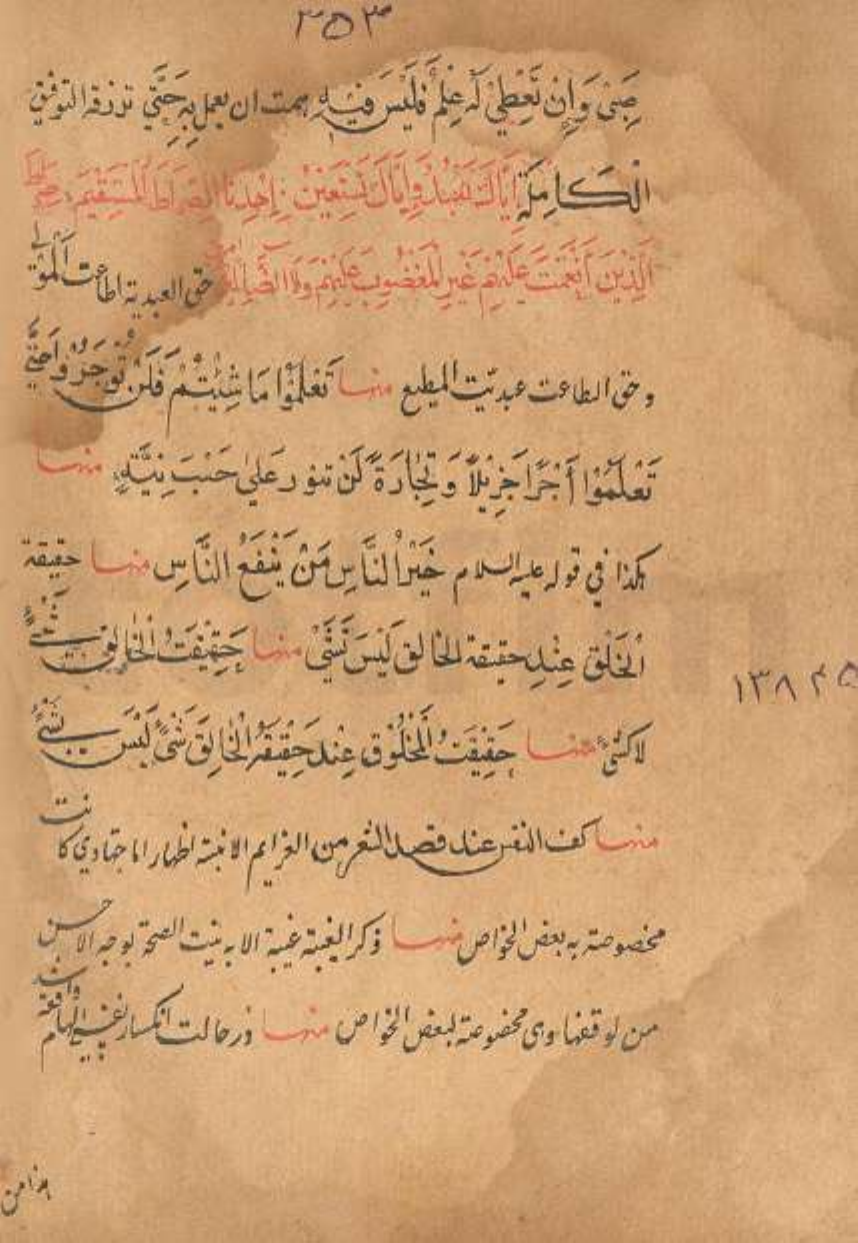 ٣٥٣
صَبِیْ وَاِنْ تُعْطِیْ لَهٗ عِلْمٌ فَلَیْسَ فِیْهِ همت ان یعمل بِهٖ حَتّٰی ترزقه التوفیق
الْکَامِلَةَ اِیَّاكَ نَعْبُدُ وَاِیَّاكَ نَسْتَعِیْنُ اِهْدِنَا الصِّرَاطَ الْمُسْتَقِیْمَ صِرَاطَ
الَّذِیْنَ اَنْعَمْتَ عَلَیْهِمْ غَیْرِ الْمَغْضُوبِ عَلَیْهِمْ وَلَا الضَّالِّیْنَ حق العبدیة اطاعت الْمَوْلٰی
وحق الطاعت عبدیّت المطیع منها تَعْلَمُوْا مَا شِئْتُمْ فَلَنْ تُوْجَرُوْا حَتّٰی
تَعْلَمُوْا اَجْرًا جَزِیْلًا وَتِجَارَةً لَنْ تبور عَلٰی حَسْبَ نِیَّةٍ منها
هکذا فی قوله علیه السلام خَیْرُ النَّاسِ مَنْ یَنْفَعُ النَّاسِ منها حقیقة
الْخَلْقِ عِنْدِ حقیقة الخالق لَیْسَ بَشَیْ منها حَقِیْقَتُ الْخَالِقِ شَیْءٌ
لاکشئ منها حَقِیْقَتُ الْمَخْلُوْقِ عِنْدَ حَقِیْقَةُ الْخَالِقَ شَیْءٌ لَیْسَ بشَیْءٌ
منها کف النفس عند قصد الثغر من العزایم الا نیته اظهار الاجتهادی کانت
مخصوصته به بعض الخواص منها ذکر الغیبة غیبة الا به نیت الصحة بوجه الاحسن
من لوقفها وهی مخصوصته لبعض الخواص منها در حالت انکسار نفسی الهام واقعه شد
١٣٨٢٥
هذا من